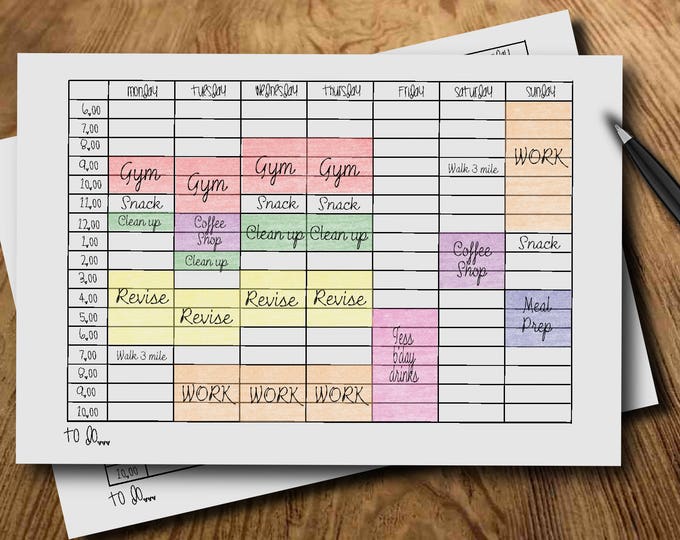 monday tuesday wednesday thursday friday saturday sunday
6.00
7.00
8.00
9.00 Gym Gym Gym Walk 3 mile WORK
10.00 Gym
11.00 Snack Snack Snack
12.00 Clean up Coffee Clean up Clean up
1.00 Shop Coffee Snack
2.00 Clean up Shop
3.00
4.00 Revise Revise Revise Meal
5.00 Revise Prep
6.00 Jess
7.00 Walk 3 mile b'day
8.00 drinks
9.00 WORK WORK WORK
10.00
to do...
10.00
to do...